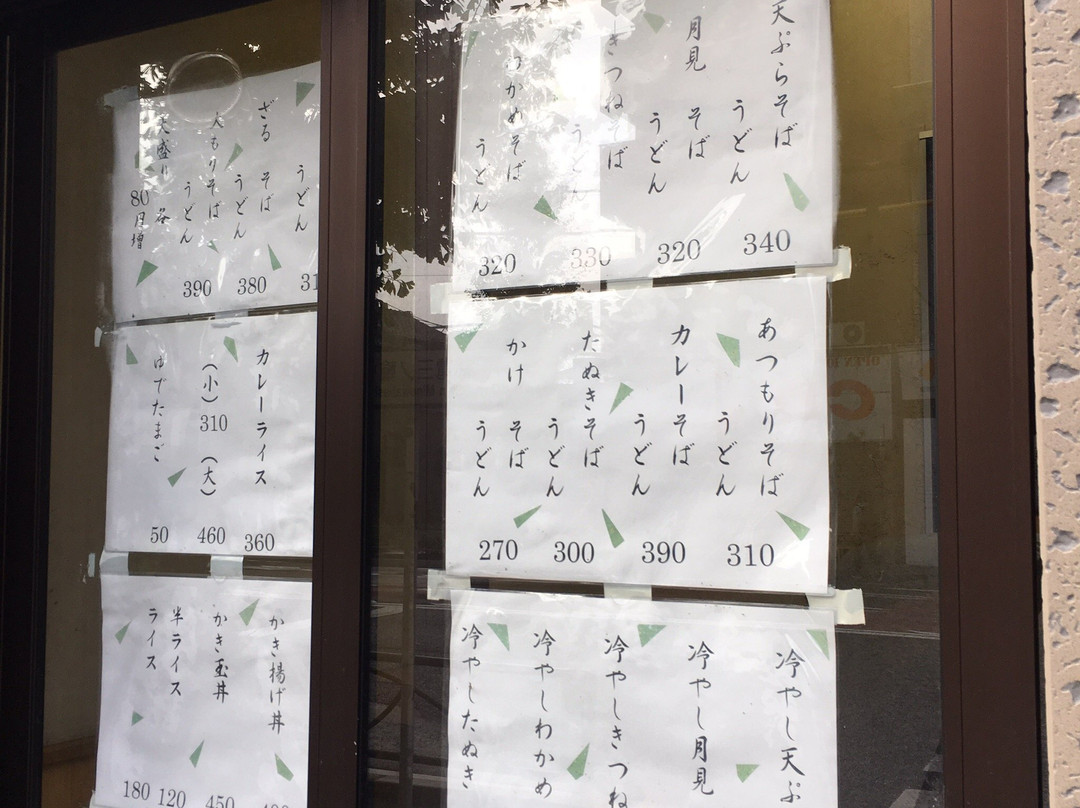 天ぷらそば
うどん
340
月見そば
うどん
320
きつねそば
うどん
330
わかめそば
うどん
320
あつもりそば
うどん
310
カレーそば
うどん
390
たぬきそば
うどん
300
かけそば
うどん
270
冷やし天ぷ
冷やし月見
冷やしきつね
冷やしわかめ
冷やしたぬき
うどん
31
ざるそば
うどん
380
大もりそば
うどん
390
大盛り
80円増
カレーライス
360
(小)310(大)
460
ゆでたまご
50
かき揚げ丼
かき玉丼
450
半ライス
120
ライス
180